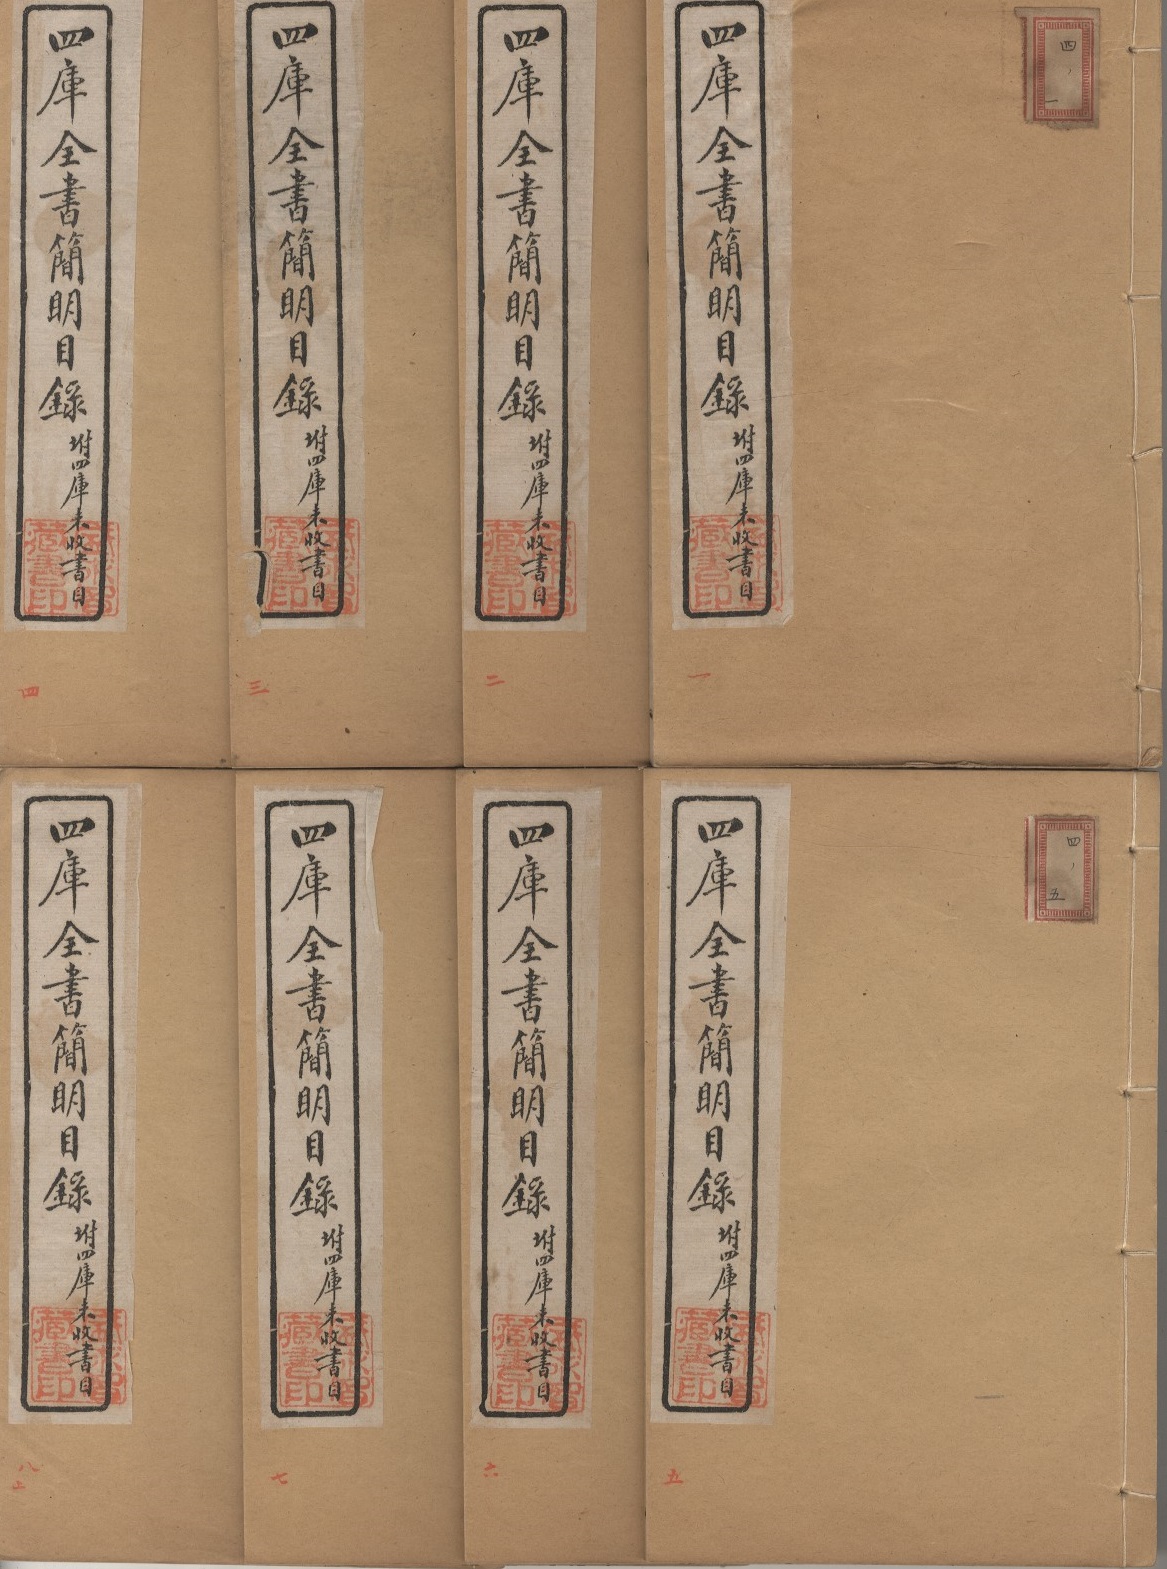 四、一
四庫全書簡明目錄
坿四庫未收書目
藏書印
一
四庫全書簡明目錄
坿四庫未收書目
藏書印
二
四庫全書簡明目錄
坿四庫未收書目
藏書印
三
四庫全書簡明目錄
坿四庫未收書目
藏書印
四
四、五
四庫全書簡明目錄
坿四庫未收書目
藏書印
五
四庫全書簡明目錄
坿四庫未收書目
藏書印
六
四庫全書簡明目錄
坿四庫未收書目
藏書印
七
四庫全書簡明目錄
坿四庫未收書目
藏書印
八上